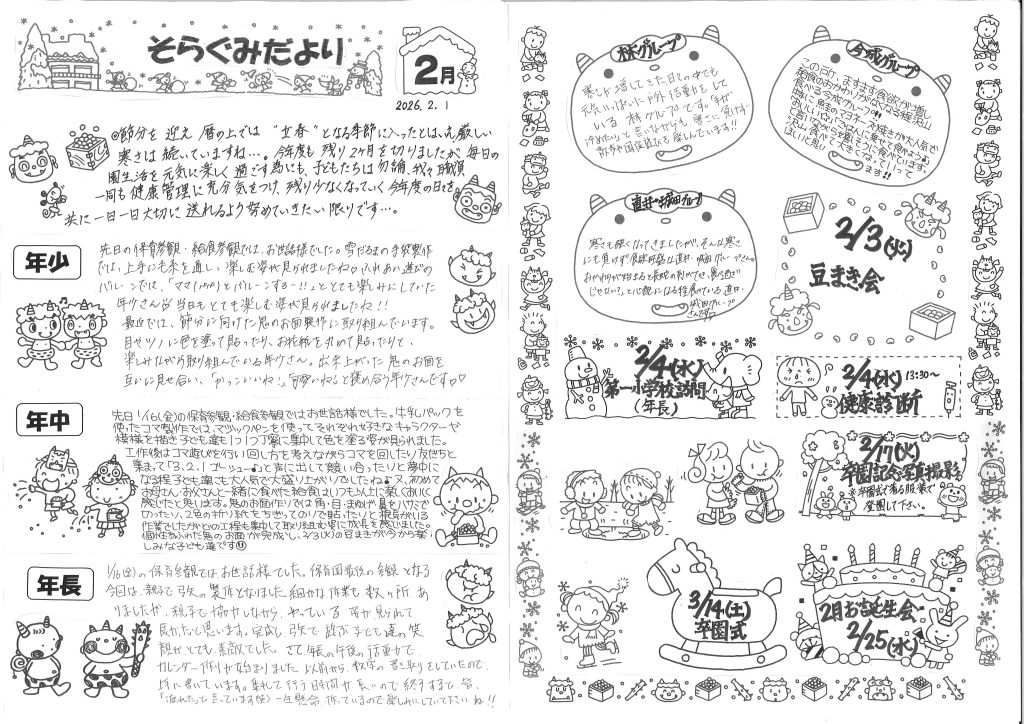 そらぐみだより
2月
2026.2.1
◎節分を迎え 暦の上では "立春" となる季節に入ったとは、え厳しい
寒さは続いていますね…。今年度も残り2ヶ月を切りましたが毎日の
園生活を元気に楽しく過ごす為にも、子どもたちは勿論、我々職員
一同も健康管理に充分気をつけ、残り少なくなっていく今年度の日々を
共に一日一日大切に送れるよう努めていきたい限りです…。
年少
先日の保育参観・給食参観では、お世話様でした。雪だるまの手袋製作
では、上手に毛糸を通し、楽しむ姿が見られましたね。ふれあい遊びの
バルーンでは、「ママ(パパ)とバルーンするー!!」ととても楽しみにしていた
年少さん 当日もとても楽しむ姿が見られましたね!!
最近では、節分に向けた鬼のお面製作に取り組んでいます。
目やツノに色を塗って貼ったり、お花紙を丸めて貼ったりと、
楽しみながら取り組んでいる年少さん。出来上がった鬼のお面を
互いに見せ合い、「かっこいいね」「可愛いね」と褒め合う年少さんです♡
年中
先日1/16(金)の保育参観・給食参観ではお世話様でした。牛乳パックを
使ったコマ製作では、マジックペンを使ってそれぞれ好きなキャラクターや
模様を描き子ども達も1つ1つ丁寧に集中して色を塗る姿が見られました。
工作後はコマ遊びを行い回し方を考えながらコマを回したり友だちと
集まって「3,2,1 ゴーシュー♪」と声に出して競い合ったりと夢中に
なる程子ども達も大人気で大盛り上がりでしたね♪又、初めて
お母さん・お父さんと一緒に食べた給食はいつも以上に楽しくおいしく
感じたと思います。鬼のお面作りでは角・目・まゆげ・鼻をハサミで
切ったり、2色の折り紙をちぎってのりで貼ったりと根気がいる
作業でしたがどの工程も集中して取り組む姿に成長を感じました。
個性あふれた鬼のお面が完成し、2/3(火)の豆まきが今から楽
しみな子ども達です
年長
1/16(金)の保育参観ではお世話様でした。保育園最後の参観となる
今回は、親子で弓矢の製作となりました。細かな作業も数ヶ所あ
りましたが、親子で協力しながら、作っている姿が見られて
良かったと思います。完成し、弓矢で遊ぶ子ども達の笑
顔がとても素敵でした。さて年長の午後の活動で
カレンダー作りが始まりました。以前から、数字の書き取りをしていたので、
上手に書いています。集中して行う時間が長いので終了すると皆、
「疲れた」と言っています(笑) 一生懸命作っているので楽しみにしていて下さいね!!
林グループ
寒さが増してきた日々の中でも
元気いっぱいに戸外活動をして
いる林グループです。「手が
冷めたい」と言いながらも寒さに負けず
散歩や園庭遊びを楽しんでいます!!
今城グループ
この所、ますます食欲が増し
給食のおかわりがなくなる程沢山
食べる今城グループさん。
特に、鮭のマヨネーズ焼きが大人気で
直井・城田グループ
寒さも強くなってきましたが、そんな寒さ
にも負けず食欲旺盛な直井・城田グループさん。
おかわりが始まると長蛇の列ができ、「食べ過ぎ
じゃない?」と心配になる程食べている直井・
城田グループ
さんです♡
2/3(火)
豆まき会
2/4(水)
第一小学校訪問
(年長)
2/4(水) 13:30〜
健康診断
2/17(火)
卒園記念写真撮影
※卒園式で着る服装で
登園して下さい。
3/14(土)
卒園式
2月お誕生会
2/25(水)